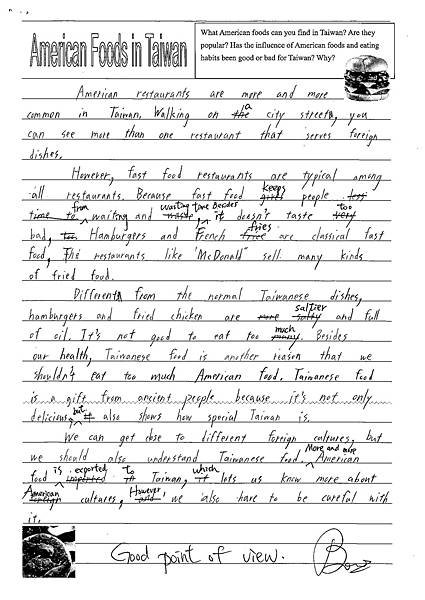 American Foods in Taiwan
What American foods can you find in Taiwan? Are they
popular? Has the influence of American foods and eating
habits been good or bad for Taiwan? Why?
American restaurants are more and more
a
common in Taiwan. Walking on the city streets, you
can see more than one restaurant that serves foreign
dishes.
However, fast food restaurants are typical among
keeps
all restaurants. Because fast food people less
from waiting time Besides too
time to waiting and waste, it doesn't taste very
fries
bad, too. Hamburgers and French fries are classical fast
food, The restaurants like "McDonald" sell many kinds
of fried food.
Different from the normal Taiwanese dishes,
saltier
hamburgers and fried chicken are more salty and full
much
of oil. It's not good to eat too many. Besides
our health, Taiwanese food is another reason that we
shouldn't eat too much American food. Taiwanese food
is a gift from ancient people because it's not only
but
delicious, it also shows how special Taiwan is.
We can get close to different foreign cultures, but
More and more
we should also understand Taiwanese food. American
is exported to which
food imported in Taiwan, it lets us know more about
American However,
foreign cultures, and we also have to be careful with
it.
Good point of view.